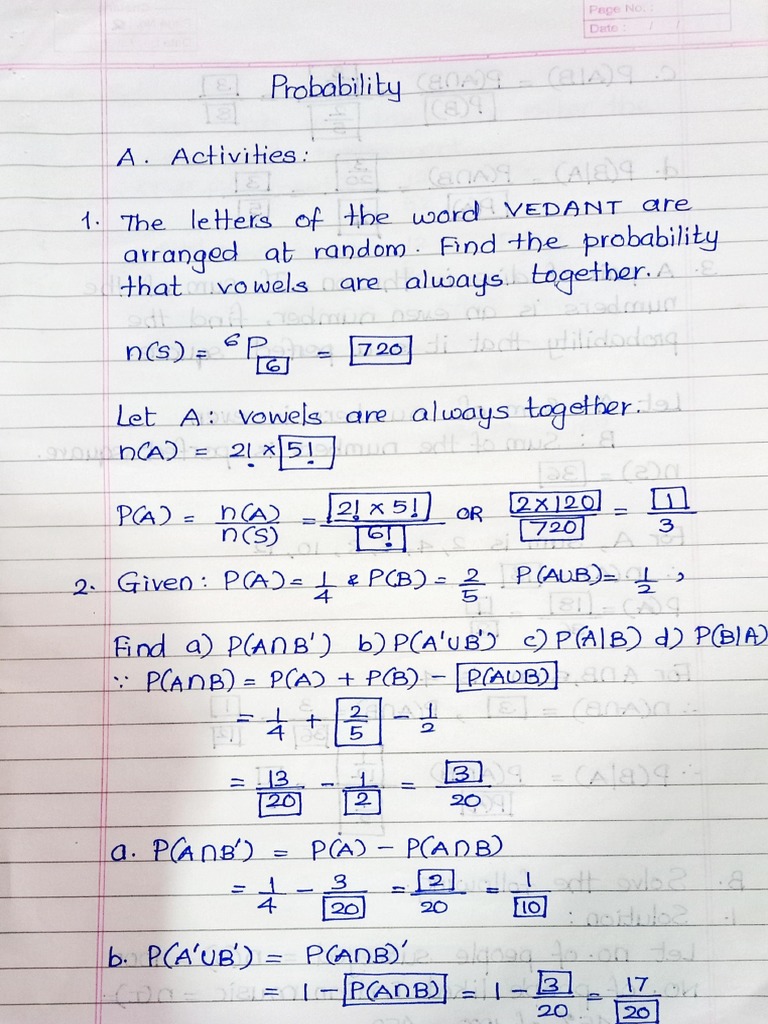 Page No. :
Date : / /
Probability
A. Activities:
1. The letters of the word VEDANT are
arranged at random. Find the probability
that vowels are always together.
n(S) = ⁶P₆ = 720
Let A: vowels are always together.
n(A) = 2! × 5!
P(A) = n(A)/n(S) = 2! × 5!/6! OR 2×120/720 = 1/3
2. Given: P(A) = 1/4 & P(B) = 2/5 P(A∪B) = 1/2 ,
Find a) P(A∩B') b) P(A'∪B') c) P(A|B) d) P(B|A)
∵ P(A∩B) = P(A) + P(B) - P(A∪B)
= 1/4 + 2/5 - 1/2
= 13/20 - 1/2 = 3/20
a. P(A∩B') = P(A) - P(A∩B)
= 1/4 - 3/20 = 2/20 = 1/10
b. P(A'∪B') = P(A∩B)'
= 1 - P(A∩B) = 1 - 3/20 = 17/20